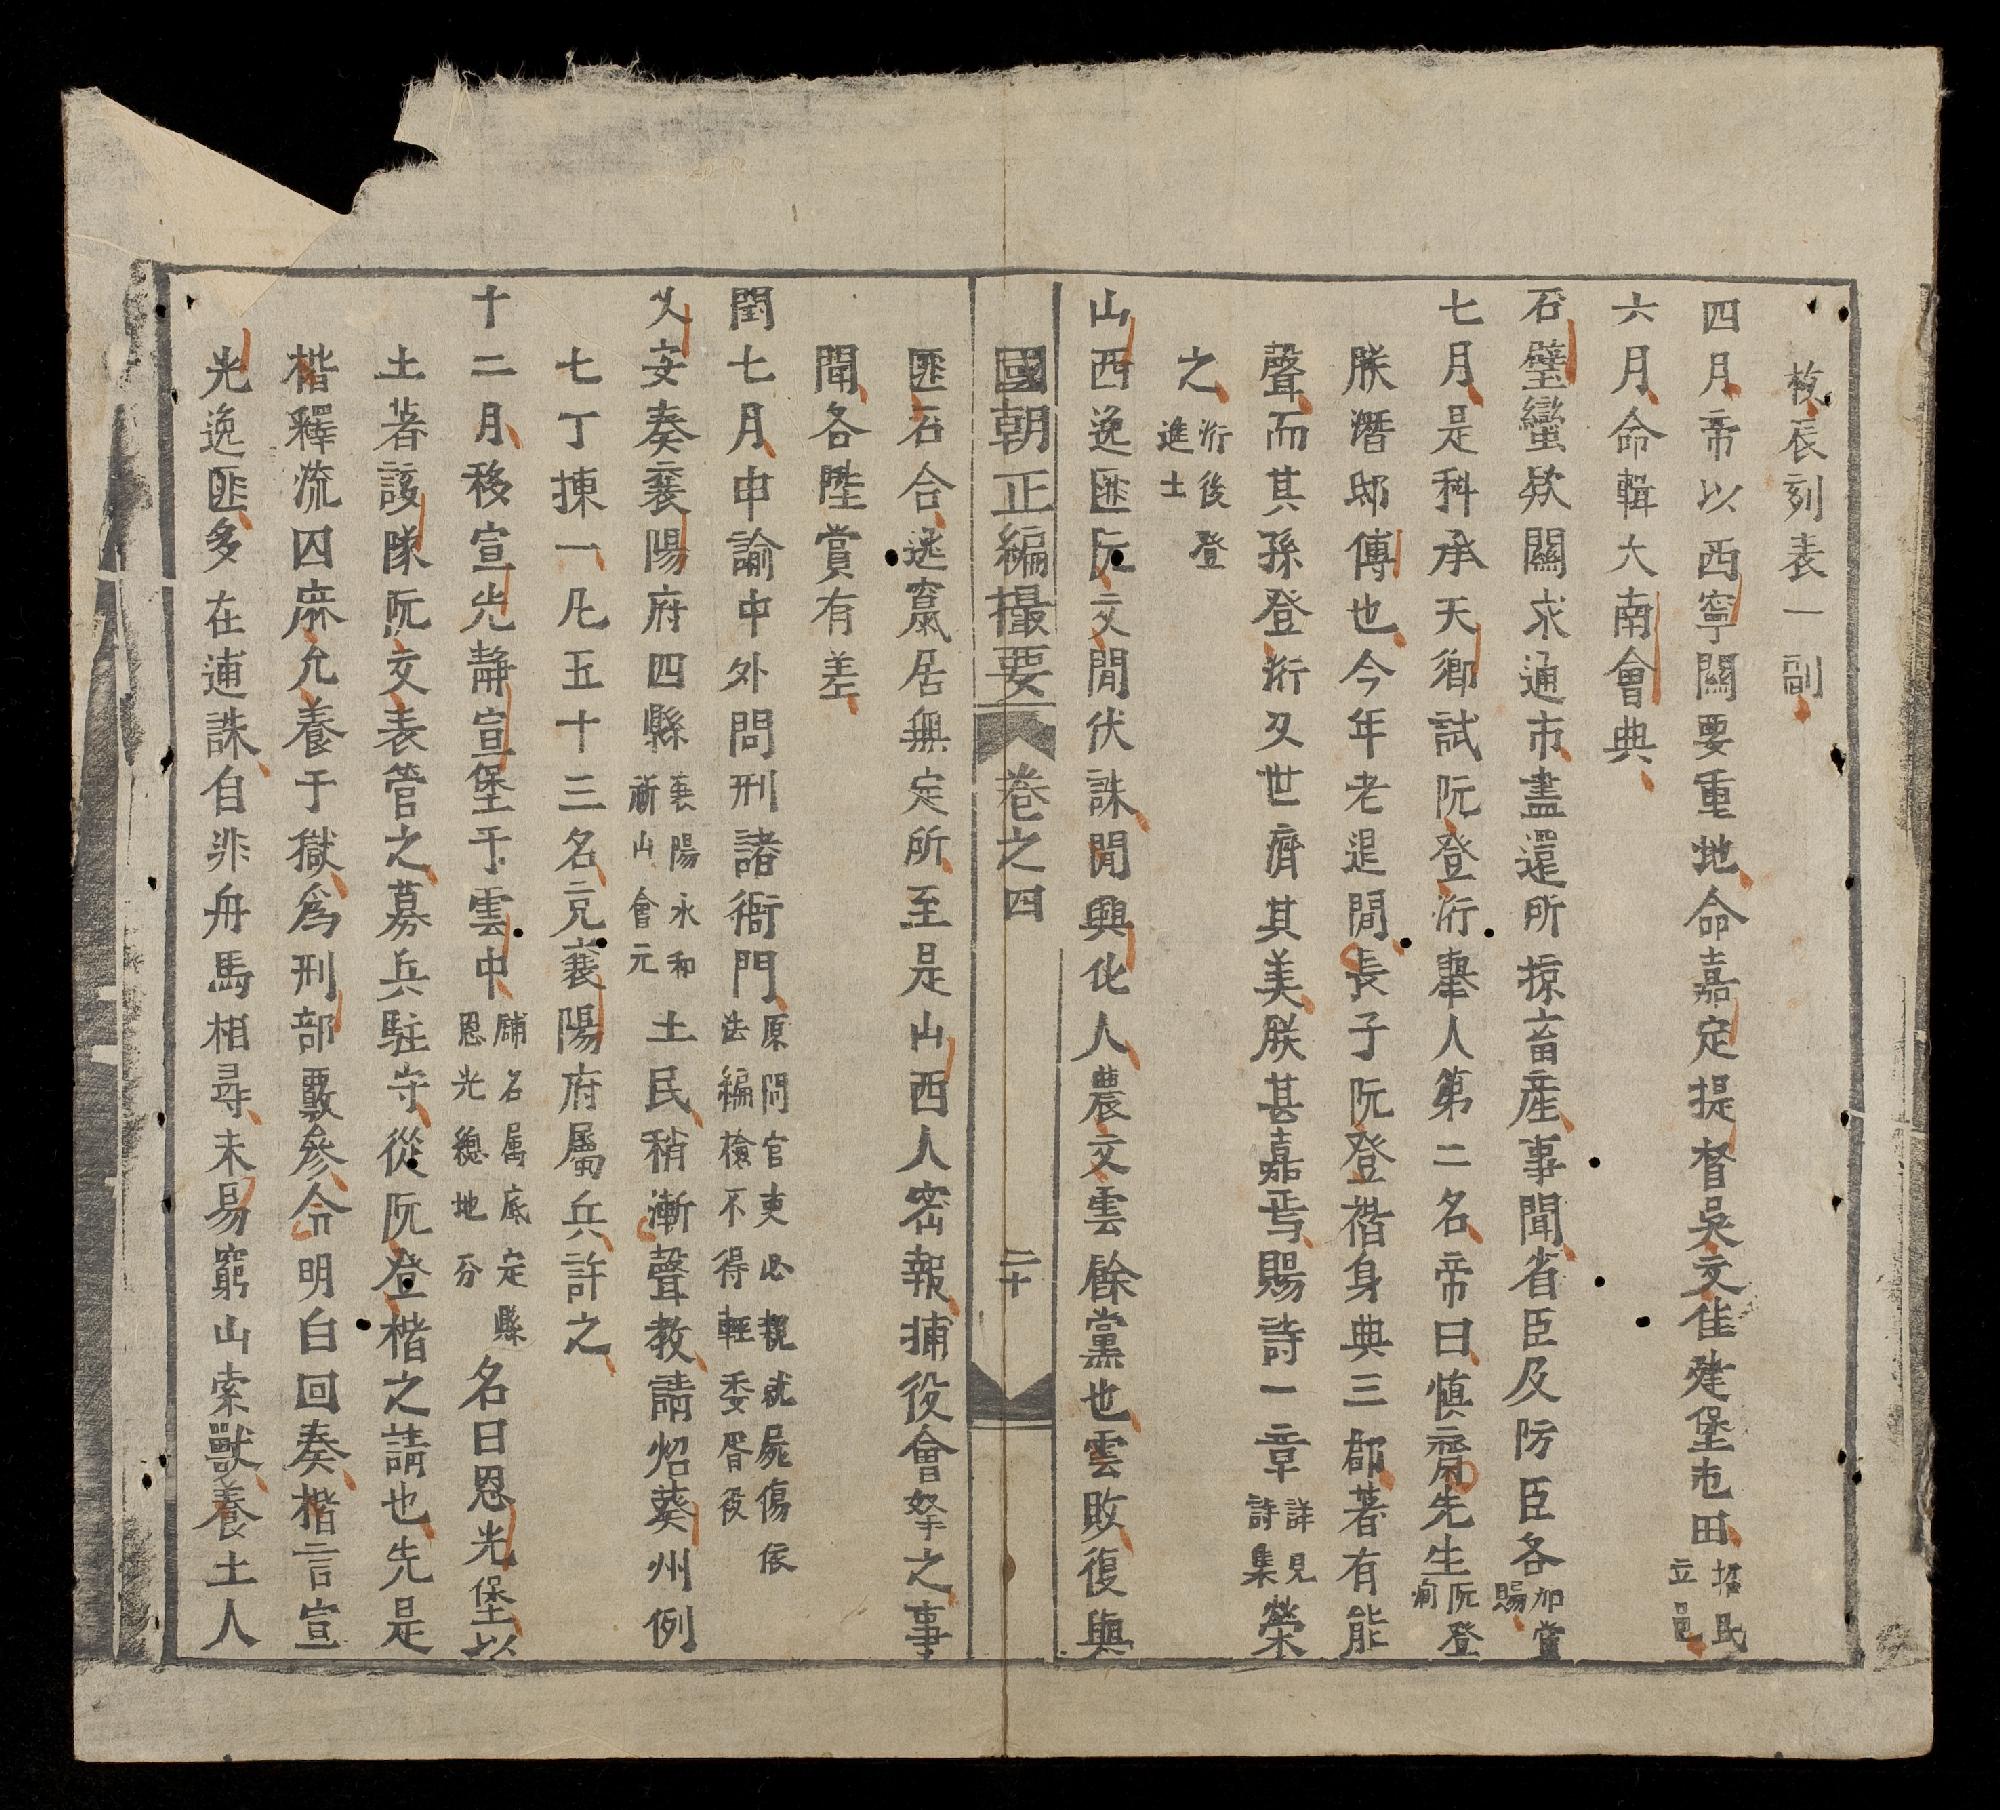 枚辰刻表一副
四月帝以西寧關要重地命嘉定提督吳文佳建堡屯田招民立邑
六月命輯大南會典
石璧蠻欵關求通市盡還所掠畜產事聞省臣及防臣各加賞賜
七月是科承天鄉試阮登洐舉人第二名帝曰慎齋先生阮登㫬
朕潛邸傅也今年老退閒長子阮登楷身典三郡著有能
聲而其孫登洐又世濟其美朕甚嘉焉賜詩一章詳見詩集榮
之洐後登進士
山西逸匪阮文閒伏誅閒興化人農文雲餘黨也雲敗復與
國朝正編撮要 卷之四 二十
匪石合逃竄居無定所至是山西人密報捕役會拏之事
聞各陞賞有差
閏七月申諭中外問刑諸衙門原問官吏必親就屍傷依法編檢不得輕委胥役
乂安奏襄陽府四縣襄陽永和蔪山會元土民稍漸聲教請炤葵州例
七丁揀一凡五十三名充襄陽府屬兵許之
十二月移宣光靜宣堡于雲中鋪名属底定縣恩光總地分名曰恩光堡以
土著該隊阮文表管之募兵駐守從阮登楷之請也先是
楷釋流囚麻允養于獄爲刑部覈參命明白回奏楷言宣
光逸匪多在逋誅自非舟馬相尋未易窮山索獸養土人